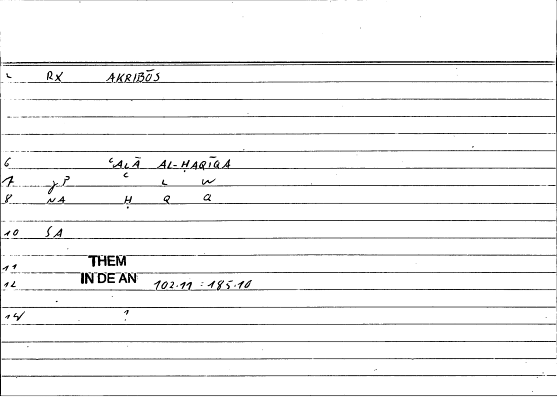 2 RX AKRIBŌS
6 ʿALĀ AL-ḤAQĪQA
7 ʿ L W
8 NA Ḥ Q Q
10 SA
11 THEM
12 IN DE AN 102.11 : 185.10
14 1